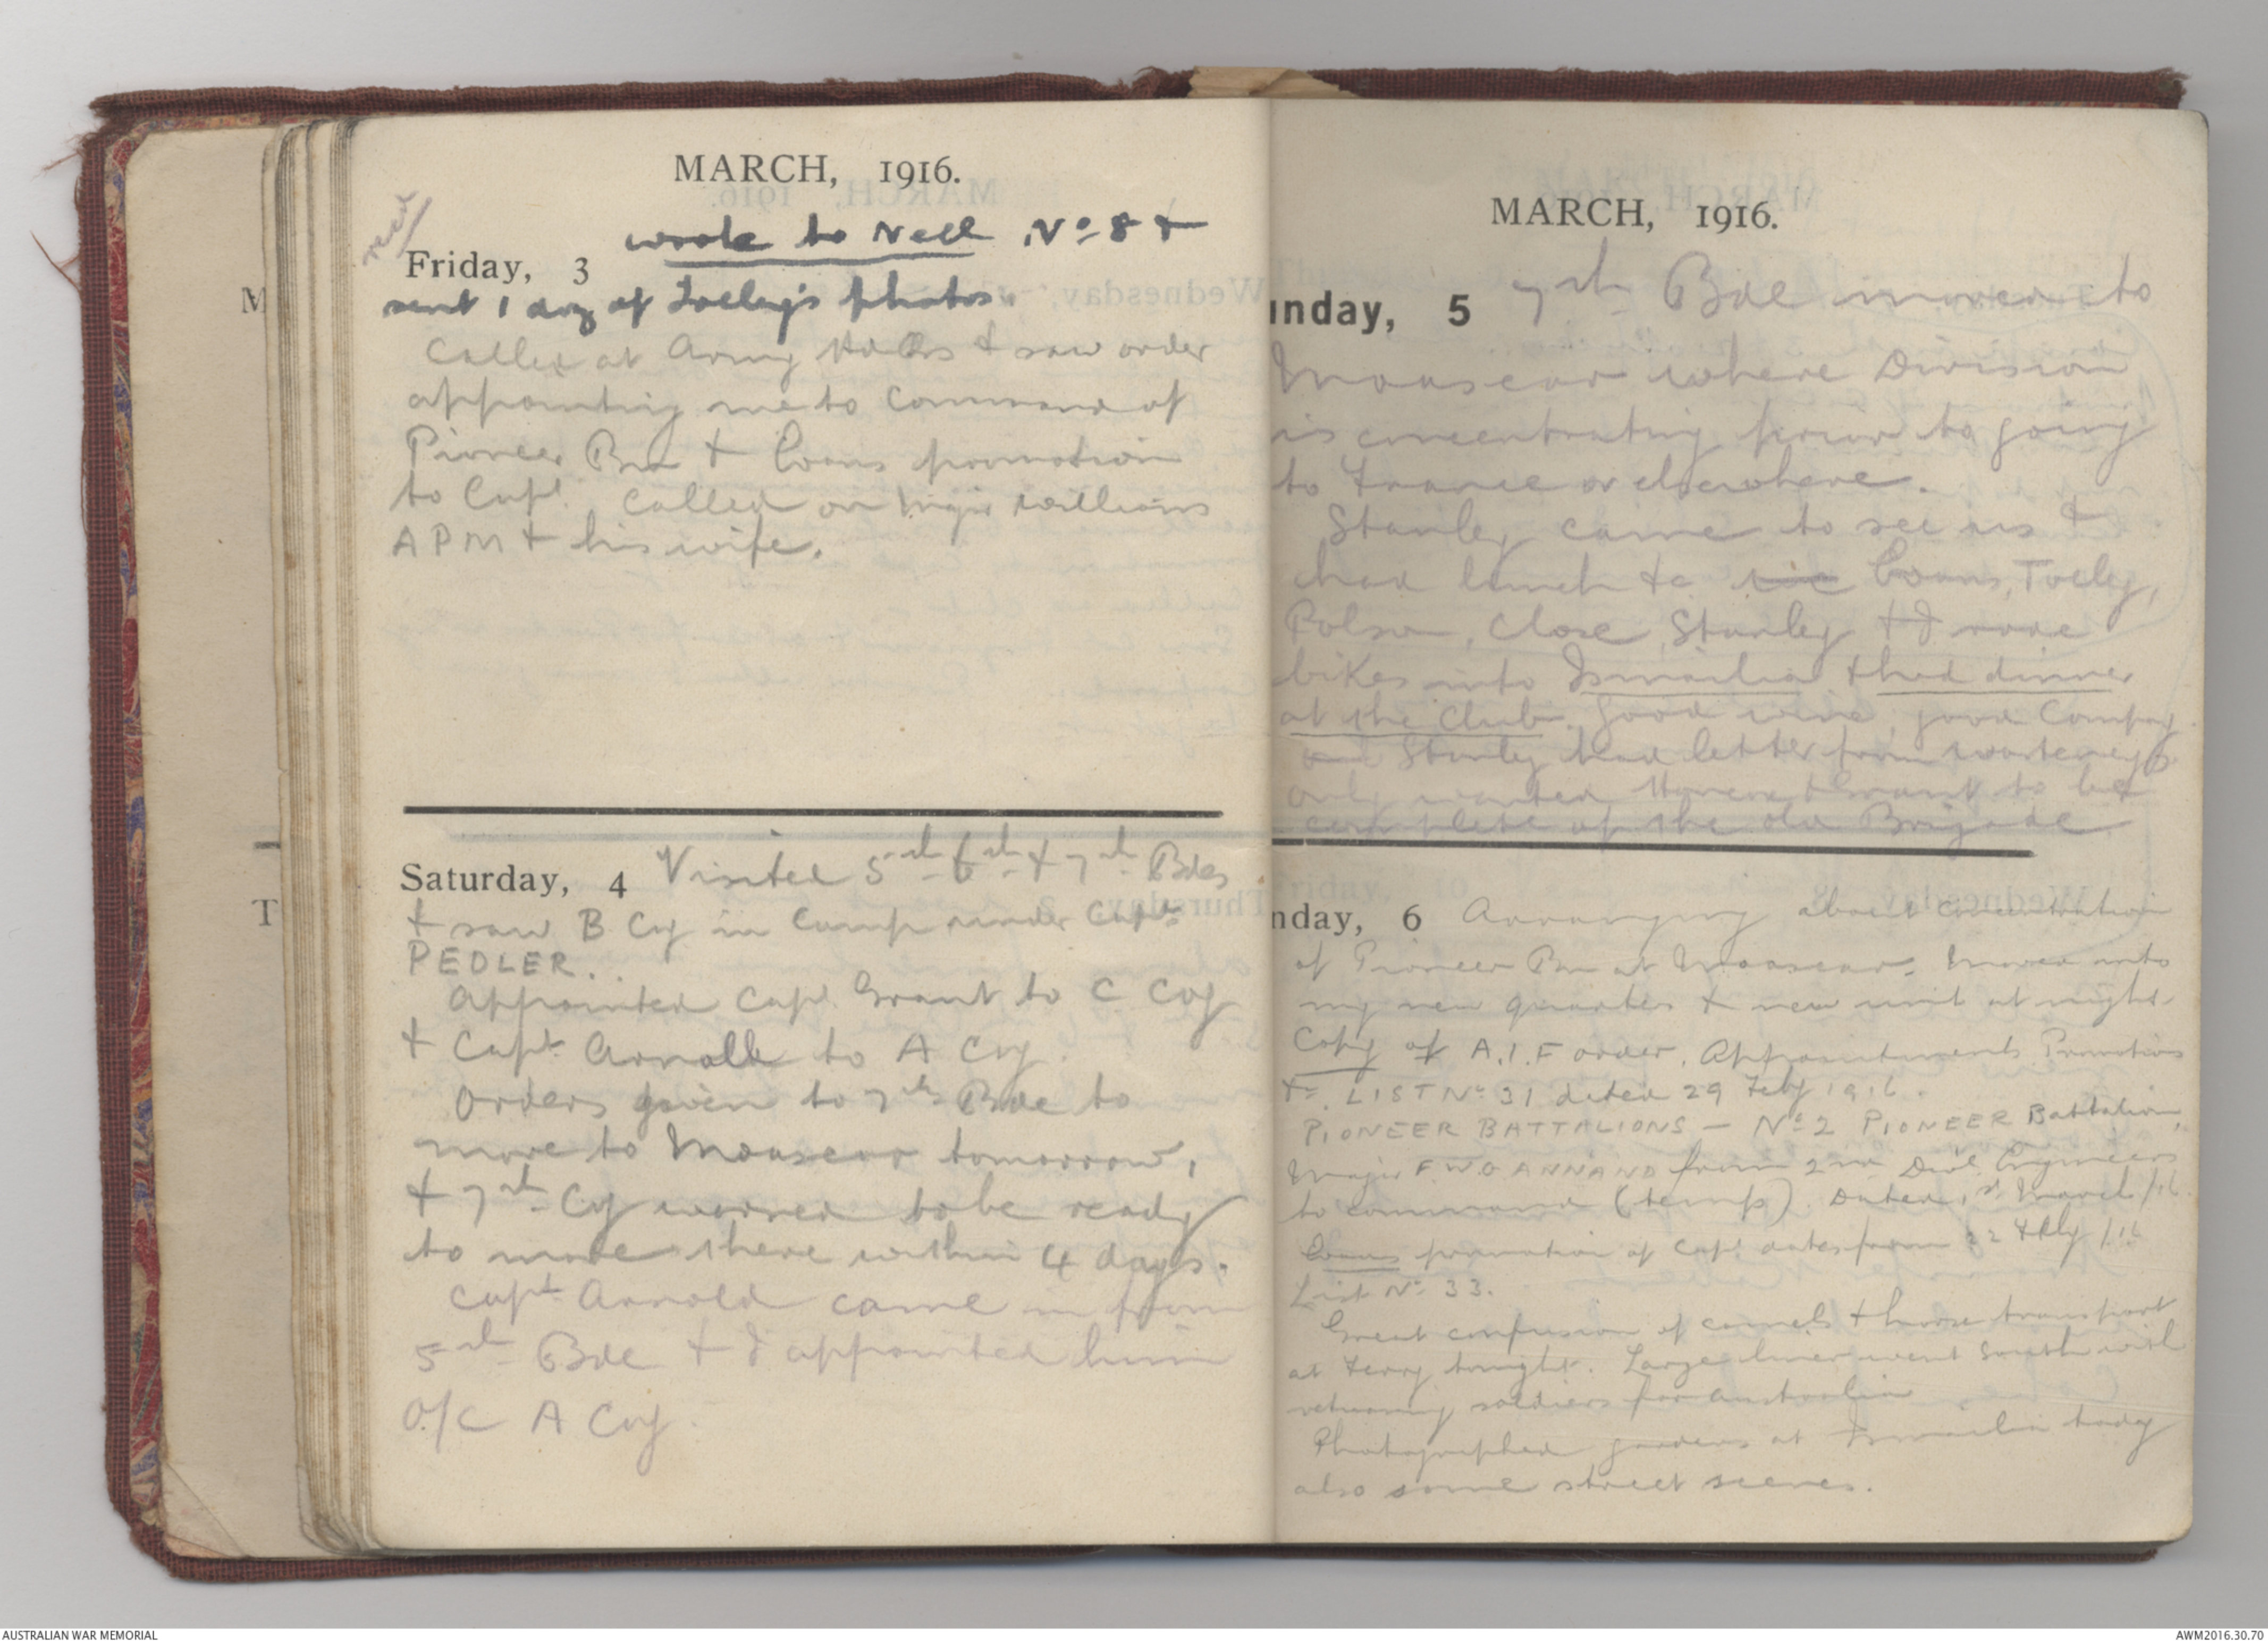 MARCH, 1916.
recd
Friday, 3 wrote to Nell No 8 +
sent 1 doz of Tolley's photos.
Called at Army Hd Qrs & saw order
appointing me to Command of
Pioneer Bn & Evans promotion
to Capt. Called on Major Williams
APM & his wife.
Saturday, 4 Visited 5th 6th & 7th Bdes
& saw B Cy in Camp under Capt
PEDLER.
Appointed Capt Grant to C Coy
& Capt Arnall to A Coy.
Orders given to 7th Bde to
move to Moascar tomorrow,
& 7th Cy warned to be ready
to move there within 4 days.
Capt Arnold came in from
5th Bde & I appointed him
O/C A Coy.
MARCH, 1916.
unday, 5 7th Bde moved to
Moascar where Division
is concentrating prior to going
to France or elsewhere.
Stanley came to see us &
had lunch &c Evans, Tolley,
Polson, Close, Stanley & I rode
bikes into Ismailia & had dinner
at the Club. Good wine, good Company
Stanley had letter from
only wanted & Grant to be
complete of the old Brigade.
nday, 6 Arranging about concentration
of Pioneer Bn at Moascar. Moved into
my new quarters & new unit at night.
Copy of A.I.F order. Appointments Promotions
&c. LIST No 31 dated 29 Feby 1916.
PIONEER BATTALIONS — No 2 PIONEER Battalion,
Major F.W.G. ANNAND from 2nd Div'l Engineers
to command (temp). Dated 1st March /16.
Evans promotion of Capt dates from 22 Feby /16
List No 33.
Great confusion of camels & horse transport
at Ferry tonight. Large liner went South with
returning soldiers for Australia
Photographed gardens at Ismailia today
also some street scenes.
M
T
AUSTRALIAN WAR MEMORIAL
AWM2016.30.70